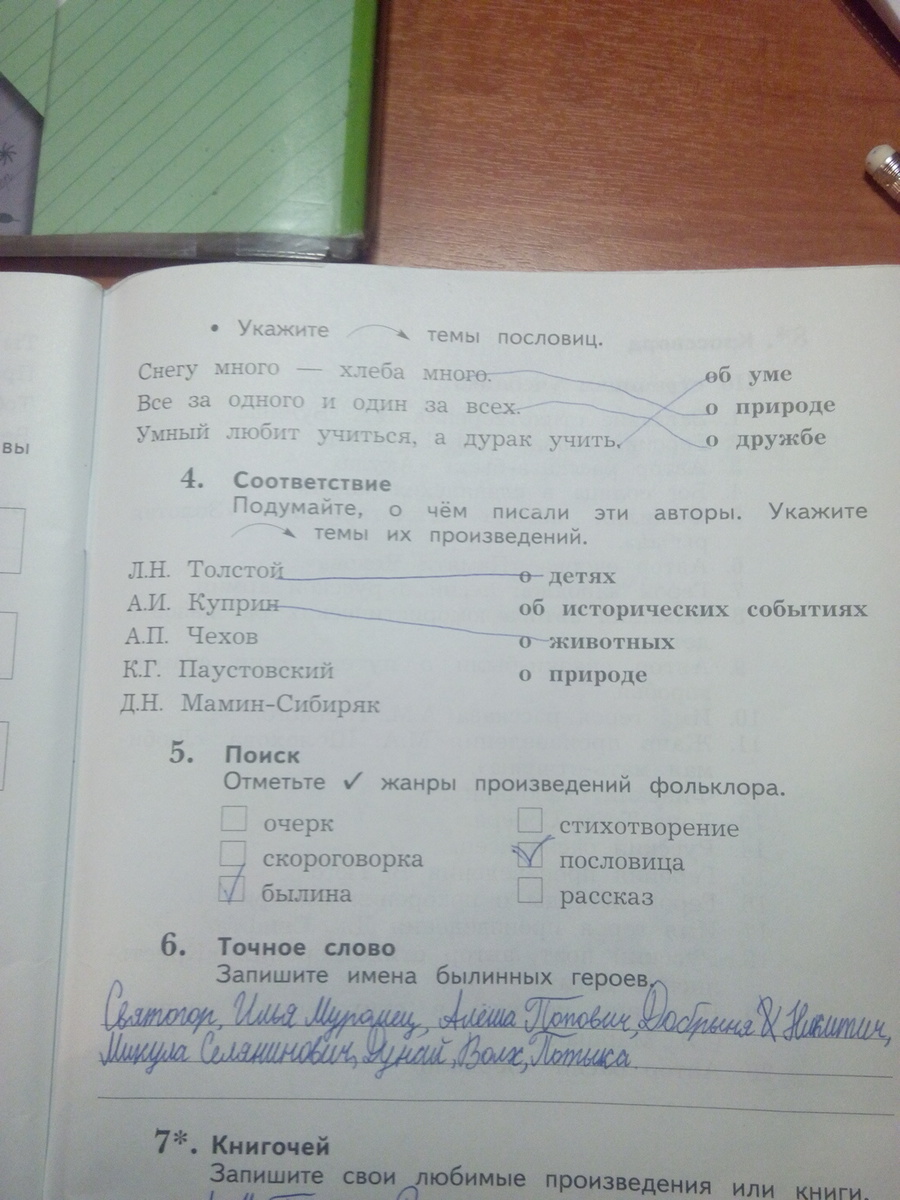 • Укажите темы пословиц.
Снегу много — хлеба много. об уме
Все за одного и один за всех. о природе
Умный любит учиться, а дурак учить. о дружбе
вы
4. Соответствие
Подумайте, о чём писали эти авторы. Укажите
темы их произведений.
Л.Н. Толстой о детях
А.И. Куприн об исторических событиях
А.П. Чехов о животных
К.Г. Паустовский о природе
Д.Н. Мамин-Сибиряк
5. Поиск
Отметьте ✓ жанры произведений фольклора.
очерк стихотворение
скороговорка ✓ пословица
✓ былина рассказ
6. Точное слово
Запишите имена былинных героев.
Святогор, Илья Муромец, Алёша Попович, Добрыня Никитич,
Микула Селянинович, Дунай, Волх, Потыка.
7*. Книгочей
Запишите свои любимые произведения или книги.